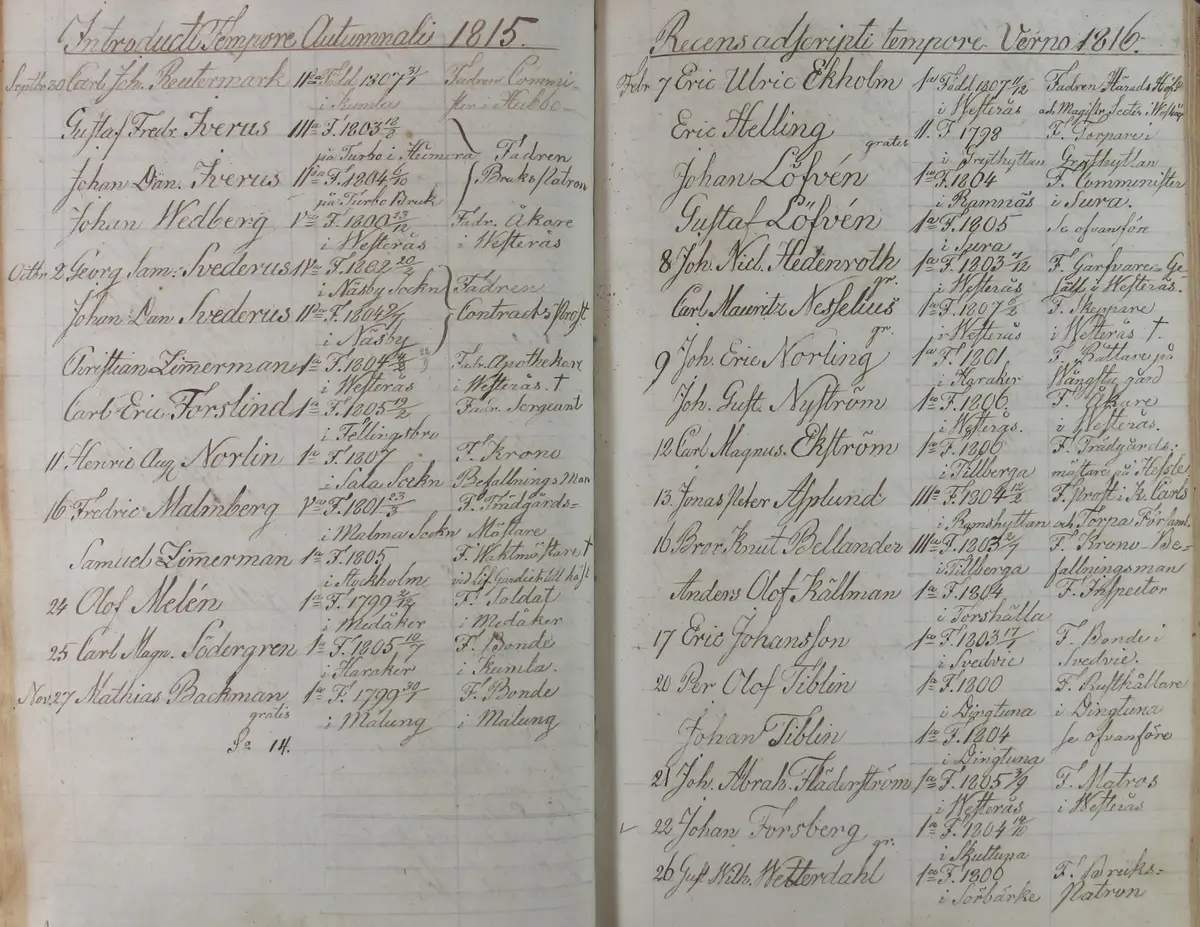 Introducti Tempore Autumnali 1815.
Septbr 30 Carl Joh. Reutermark IIda Född 1807 Fadren Commi-
i Kumla ster i Hubbo
Gustaf Fredr. Iverus IIIa F. 1803
på Turbo i Heimora Fadren
Johan Dan. Iverus IIda F. 1804 Bruks Patron
på Turbo Bruk
Johan Wedberg Va F. 1800 Fadr. Åkare
i Westerås i Westerås
Octbr 2 Georg Sam: Svederus F. 1802
i Näsby Sockn Fadren
Johan Dan Svederus IIda F. 1804 Contracts Prost
i Näsby
Christian Zimerman 1a F. 1804 Fadr. Apothekare
i Westerås i Westerås. †
Carl Eric Forslind 1a F. 1805 19/2 Fadr. Sergeant
i Fellingsbro
11 Henric Aug. Norlin 1a F. 1807 F. Krono
i Sala Sockn Befallnings Man
16 Fredric Malmberg Va F. 1801 23/3 F. Trädgårds=
i Malma Sockn Mästare
Samuel Zimerman 1a F. 1805 F. Waktmästare †
i Stockholm vid Lif Gardiet till häst
24 Olof Melén 1a F. 1799 F. Soldat
i Medåker i Medåker
25 Carl Magn. Södergren 1a F. 1805 10/7 F. Bonde
i Haraker i Kumla.
Nov. 27 Mathias Backman 1a F. 1799 F. Bonde
gratis i Malung i Malung
Sa 14.
Recens adscripti tempore Verno 1816.
Febr 7 Eric Ulric Ekholm 1a Född 1807 11/12 Fadren Härads Höfd
i Westerås och Magistr. Secter. i Westerås
Eric Helling II. F. 1798 F. Torpare i
gratis i Grythyttan Grythyttan
Johan Löfvén 1a F. 1804 F. Comminister
i Ramnäs i Sura.
Gustaf Löfvén 1a F. 1805 Se ofvanföre
i Sura
8 Joh. Nicl. Hedenroth 1a F. 1803 F. Garfvare-Ge-
gr. i Westerås säll i Westerås.
Carl Mauritz Nesselius 1a F. 1807 F. Skeppare
gr. i Westerås i Westerås †.
9 Joh. Eric Norling 1a F. 1801 F. Rättare på
i Haraker Wängsta gård
Joh. Gust. Nyström 1a F. 1806. F. Åkare
i Westerås. i Westerås.
12 Carl Magnus. Ekström 1a F. 1800 F. Trädgårds:
i Tillberga mästare på Hessle
13 Jonas Peter Asplund IIIa F. 1804 F. Prost i K. Carls
i Ramshyttan och Torpa Församl.
16 Bror Knut Bellander IIIa F. 1803 F. Krono-Be-
i Tillberga fallningsman
Anders Olof Källman 1a F. 1804 F. Inspector
i Torshälla
17 Eric Johansson 1a F. 1803 17/7 F. Bonde i
i Svedvie Svedvie.
20 Per Olof Tiblin 1a F. 1800 F. Rusthållare
i Dingtuna i Dingtuna
Johan Tiblin 1a F. 1804 Se ofvanföre
i Dingtuna
21 Joh. Abrah. Fläderström 1a F. 1805 3/9 F. Matros
i Westerås i Westerås
22 Johan Forsberg 1a F. 1804
gr. i Skultuna
26 Gust. Wilh. Wetterdahl 1a F. 1800 F. Bruks=
i Sörbärke Patron